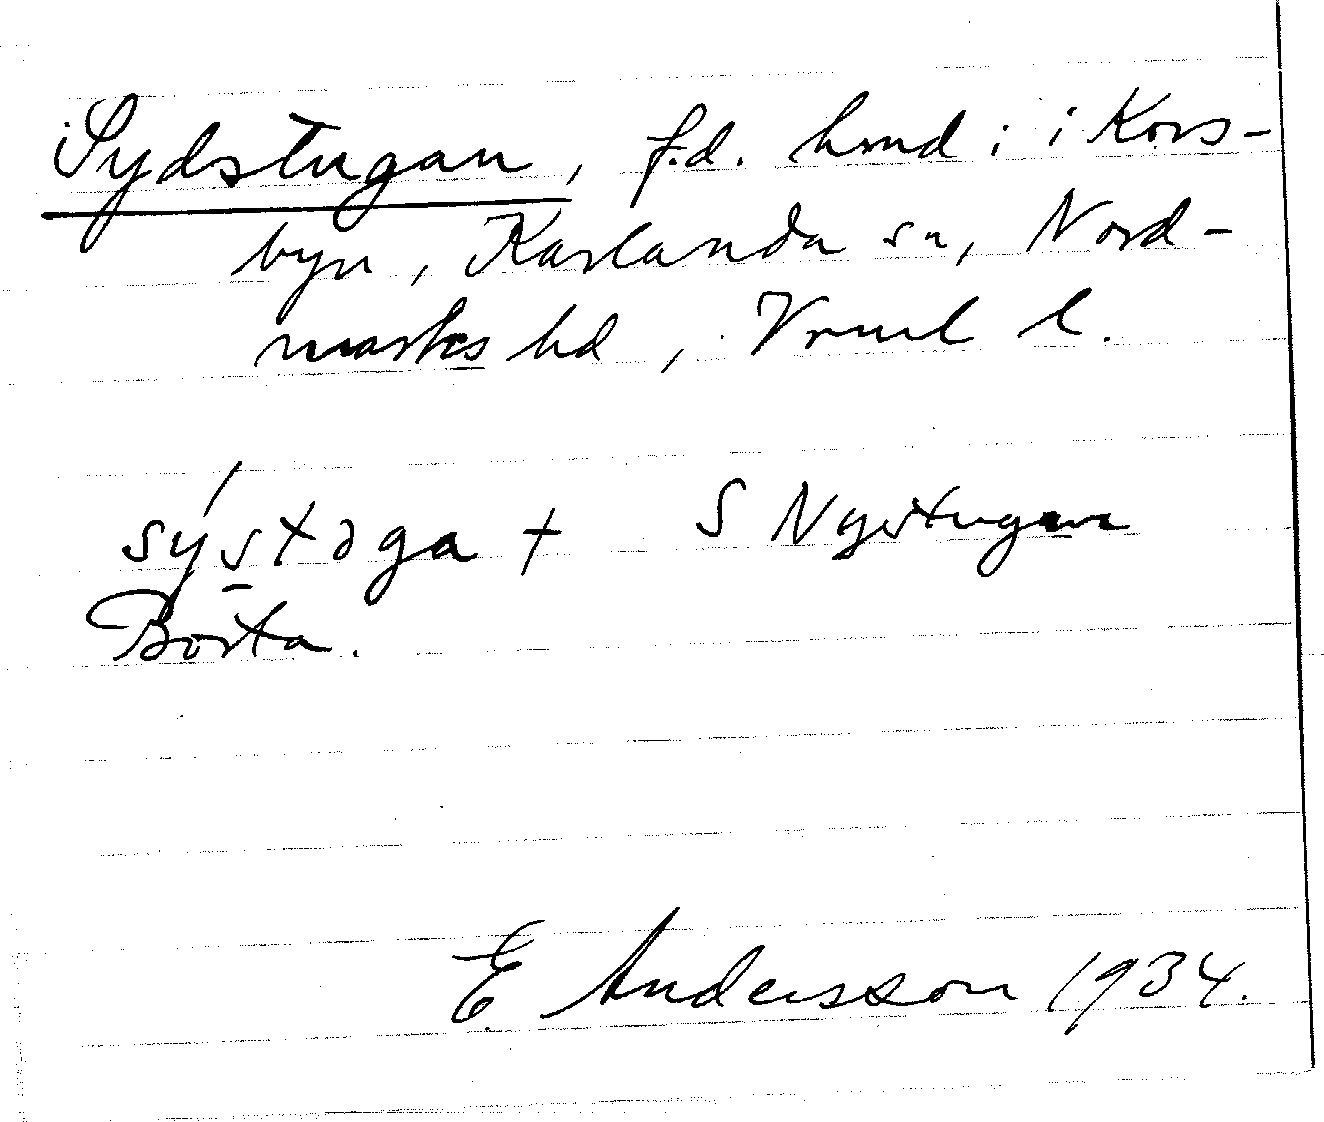 Sydstugan, f.d. hmd i i Kors-
byn, Karlanda sn, Nord-
marks hd, Vrml l.
sýstɔga + S Nystugan
Borta.
E Andersson 1934.